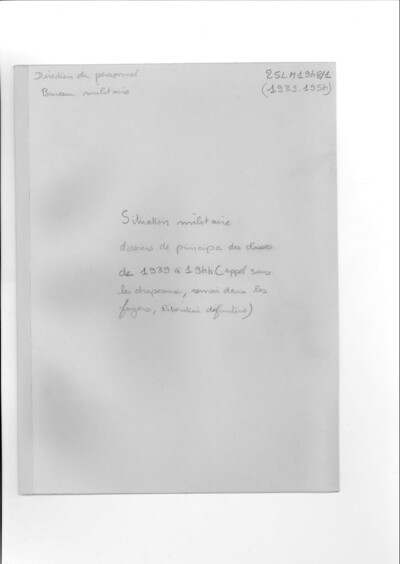 Direction du personnel
Bureau militaire
25LM1948/1
(1939.1954)
Situation militaire :
dossiers de principe des classes
de 1939 à 1944 (appel sous
les drapeaux, renvoi dans les
foyers, libération définitive)